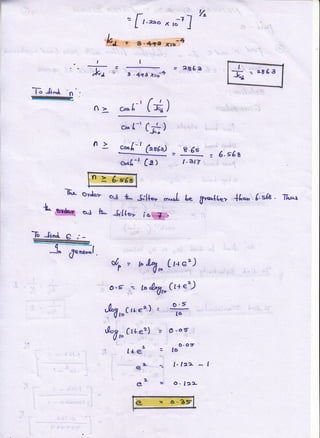 = [ 1.220 x 10⁻⁷ ]^½
k_d = 3.493 x10⁻⁴
∴ 1/k_d = 1/(3.493 x10⁻⁴) = 2863
1/k_d = 2863
To find n :-
n ≥ cosh⁻¹ (1/k_d) / cosh⁻¹ (1/k)
n ≥ cosh⁻¹ (2863) / cosh⁻¹ (2) = 8.65 / 1.317 = 6.568
n ≥ 6.568
The order of the filter must be greather than 6.568. Thus
the order of the filter is 7.
To find ε :-
In general
αp = 10 log₁₀ (1+ε²)
0.5 = 10 log₁₀ (1+ε²)
log₁₀ (1+ε²) = 0.5/10
log₁₀ (1+ε²) = 0.05
1+ε² = 10^0.05
ε² = 1.122 - 1
ε² = 0.122
ε = 0.35